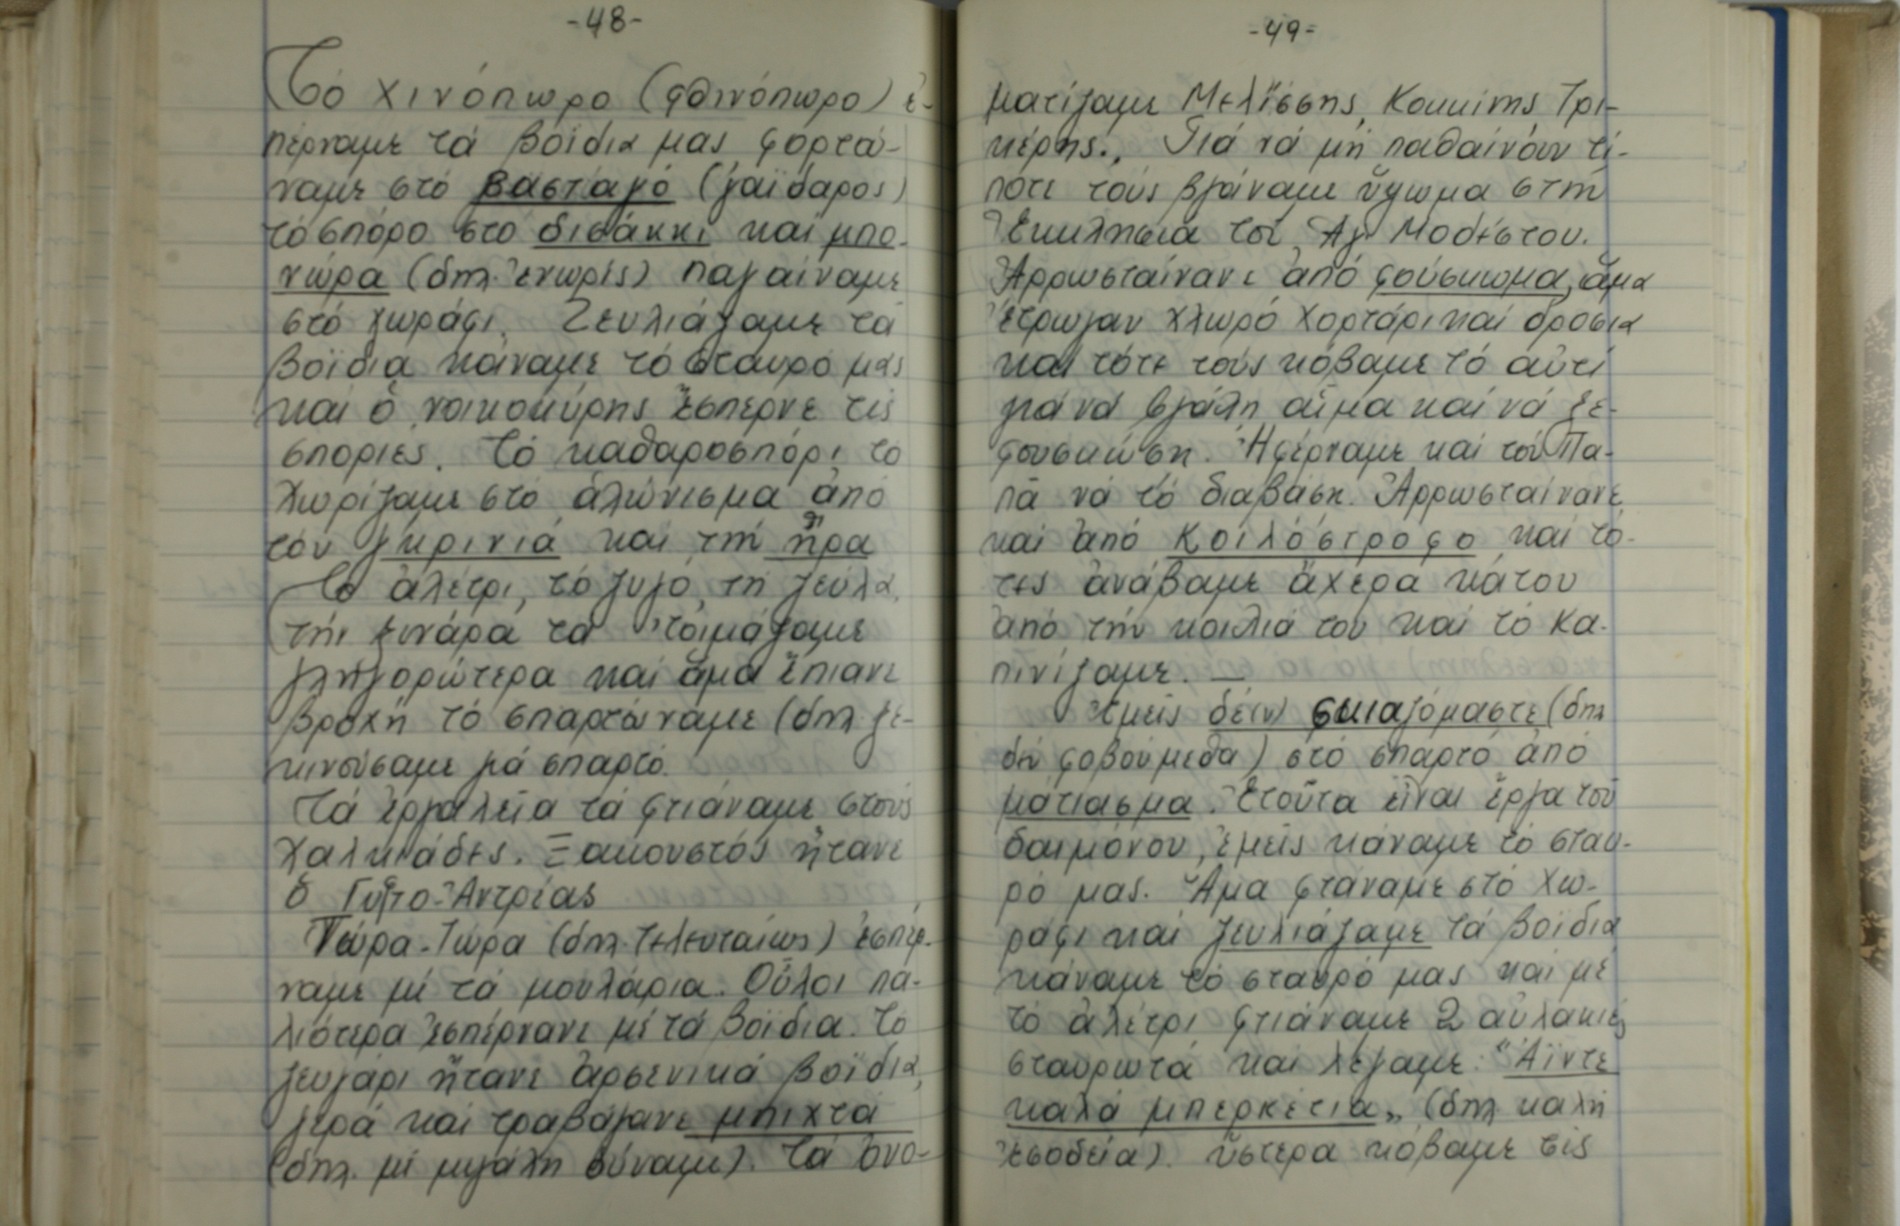 -48-
Τό χινόπωρο (φθινόπωρο) ἐ-
πέρναμε τά βόϊδια μας φορτώ-
ναμε στό βασταγό (γαϊδαρος)
τό σπόρο στο δισάκκι καί μπο-
νώρα (δηλ. ἐνωρίς) παγαίναμε
στό χωράφι. Ζευλιάζαμε τά
βόϊδια κάναμε τό σταυρό μας
και ὁ νοικοκύρης ἔσπερνε τίς
σποριές. Τό καθαροσπόρι τό
χωρίζαμε στό ἁλώνισμα ἀπό
τόν γκρινιά και τήν ἤρα
Τό ἀλέτρι, τό ζυγό, τή ζεύλα,
τήν ξυνάρα τά 'τοιμάζαμε
γληγορώτερα και ἅμα ἔπιανε
βροχή τό σπαρτώναμε (δηλ. ξε-
κινούσαμε γιά σπαρτό.
Τά ἐργαλεῖα τά φτιάναμε στούς
Χαλκιάδες. Ξακουστός ἤτανε
ὁ Γύφτο-Ἀντρίας
Τώρα-Τώρα (δηλ. τελευταίως) ἐσπέρ-
ναμε μέ τά μουλάρια. Οὗλοι πα-
λιότερα ἐσπέρνανε μέ τά βόϊδια. Τό
ζευγάρι ἤτανε ἀρσενικά βόϊδια,
γερά και τραβάγανε μπιχτά
(δηλ. μέ μεγάλη δύναμη). Τά ὀνο-
-49-
ματίζαμε Μελίσσης, Κοκκίνης Τρι-
κέρης., Γιά νά μή παθαίνουν τί-
ποτε τούς βγάναμε ὕψωμα στήν
Ἐκκλησιά τοῦ Ἁγ. Μοδέστου.
Ἀρρωσταίνανε ἀπό φούσκωμα, ἅμα
ἔτρωγαν χλωρό χορτάρι καί δροσιά
και τότε τούς κόβαμε τό αὐτί
γιά νά βγάλη αἷμα καί νά ξε-
φουσκώση. Ἠφέρναμε καί τόν Πα-
πᾶ νά τό διαβάση. Ἀρρωσταίνανε
καί ἀπό Κοιλόστροφο καί τό-
τες ἀνάβαμε ἄχερα κάτου
ἀπό τήν κοιλιά του καί τό κα-
πινίζαμε. —
Ἐμεῖς δέν σκιαζόμαστε (δηλ
δέν φοβούμεθα) στό σπαρτό ἀπό
μάτιασμα. Ἐτοῦτα εἶναι ἔργα τοῦ
δαιμόνου, ἐμεῖς κάναμε τό σταυ-
ρό μας. Ἅμα φτάναμε στό χω-
ράφι καί ζευλιάζαμε τά βόϊδια
κάναμε τό σταυρό μας καί μέ
τό ἀλέτρι φτιάναμε 2 αὐλακιές
σταυρωτά καί λέγαμε: "Ἀϊντε
καλά μπερκέτια„ (δηλ. καλή
ἐσοδεία). ὕστερα κόβαμε τίς